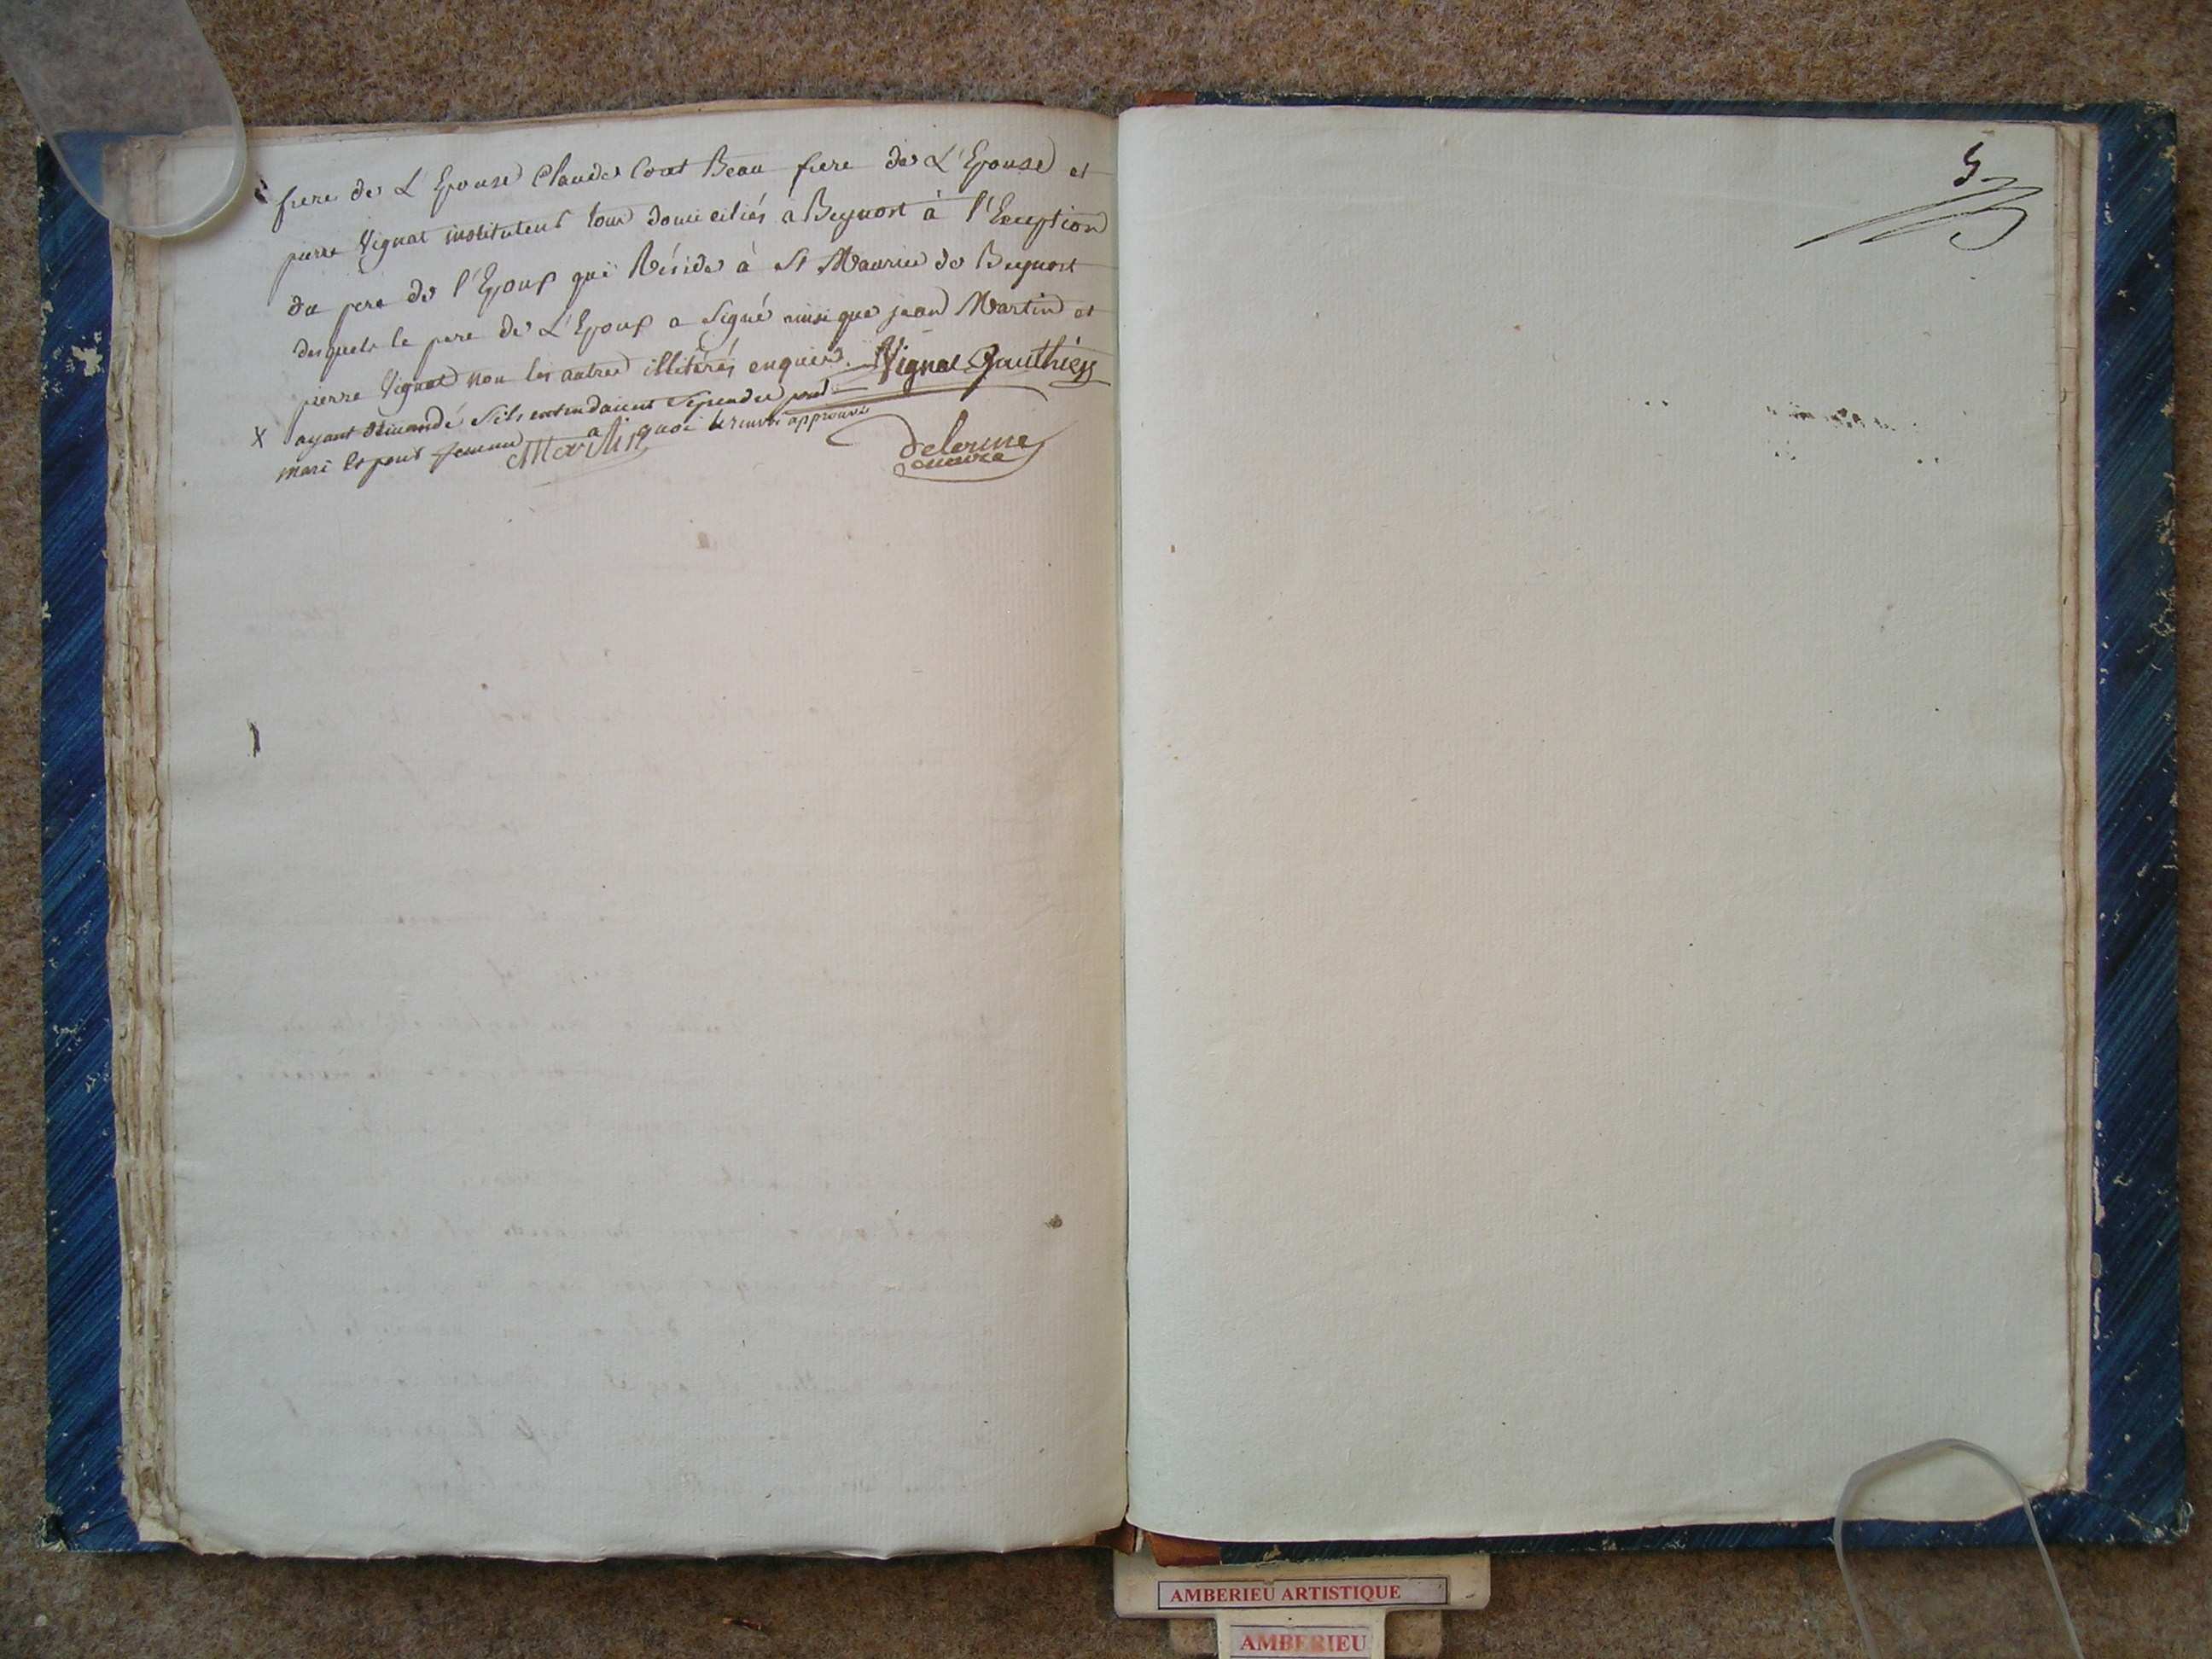 frere de L'Epouse Claude Beau frere de L'Epouse et
pierre Vignat instituteur tous domiciliés a Beynost à l'Exception
du pere de l'Epoux qui Réside à St Maurice de Beynost
desquels le pere de L'Epoux a signé ainsi que jean Martin et
pierre Vignat non les autres illitérés enquis. Vignat Gauthier
X ayant demandé s'ils entendaient se prendre pour
mari et pour femme a quoi le renvoi approuvé
Martin
delorme
maire
5
AMBERIEU ARTISTIQUE
AMBERIEU